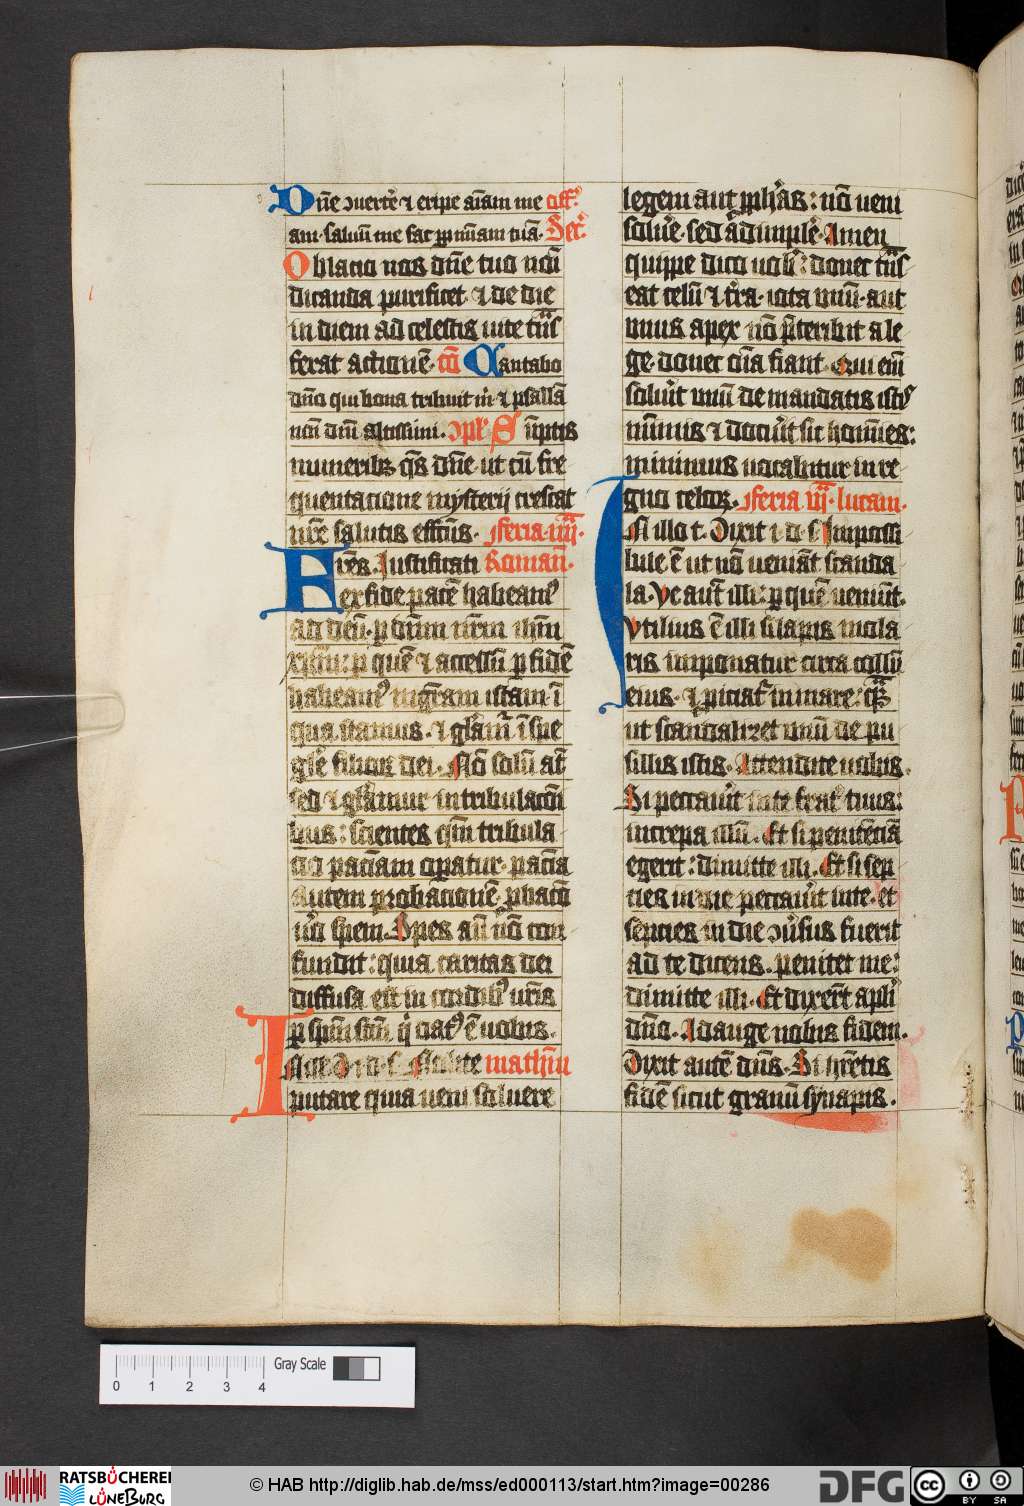 Dñe ↄuerte᷑ ⁊ eripe aīam me Off᷑
am· saluū me fac pp̄ mīam tuā· Sec᷑
Oblacio nos dñe tuo noīi
dicanda purificet· ⁊ de die
in diem ad celestis uite tns̄
ferat actionē· cō Cantabo
dño qui bona tribuit m̊ ⁊ psallā
noīi dnī altissimi· ↄpl᷑ Sūptis
muneribꝫ qs̄ dñe· ut cū fre
quentacione mysterij crescat
nr̄e salutis effcūs· Feria·iiij·
Fr̄es· Iustificati Roman̄·
ex fide pacē habeamꝰ
ad deū· ꝑ dnm̄ nrm̄ ihm̄
xp̄m· ꝑ quē ⁊ accessū ꝑ fidē
habeamꝰ in gr̄am istam· ī
qua stamus· ⁊ gl̄amr᷑ ī spe
gl̄e filioꝝ dei· Nō solū at̄
sed ⁊ gl̄amur in tribulacōi
bus: scientes qm̄ tribula
cio pacīam oꝑatur· pacīa
autem ꝓbacionē· ꝓbacō
u᷑o spem· Spes aū nō con
fundit: quia caritas dei
diffusa est in cordibꝰ nr̄is
ꝑ spm̄ scm̄ q̇ datꝰ ē nobis·
In ill· D· i· d· s· Nolite matħu
putare quia ueni soluere
legem aut ꝓph᷑as: nō ueni
solue᷑· sed adimple᷑· Amen
quippe dico uob᷑: donec tns̄
eat celū ⁊ tr̄a· iota unū· aut
unus apex nō pt̄eribit a le
ge· donec oīa fiant· Qui em̄
solu᷑it unū de mandatis istꝭ
mīmis ⁊ docu᷑it sic homīes:
minimus uocabitur in re
gno celoꝝ· Feria vi· lucam·
In illo t· Dixit i· d· s· Impossi
bile ē ut nō ueniāt scanda
la· Ve aut̄ illi: ꝑ quē ueniūt·
Vtilius ē illi si lapis mola
ris imponatur circa collū
eius· ⁊ ꝓiciat᷑ in mare: q̄m
ut scandalizet unū de pu
sillis istis· Attendite uobis·
Si peccau᷑it in te frat᷑ tuus:
increpa illū· Et si penitēciā
egerit: dimitte illi· Et si sep
cies in die peccau᷑it in te· et
sepcies in die ↄu᷑sus fuerit
ad te dicens· penitet me:
dimitte illi· Et dixer̄t apl᷑i
dño· Adauge nobis fidem·
Dixit autē dñs· Si hr̄etis
fidē sicut granū synapis·
Gray Scale
0 1 2 3 4
RATSBÜCHEREI
LÜNEBURG
© HAB http://diglib.hab.de/mss/ed000113/start.htm?image=00286
DFG
cc BY SA